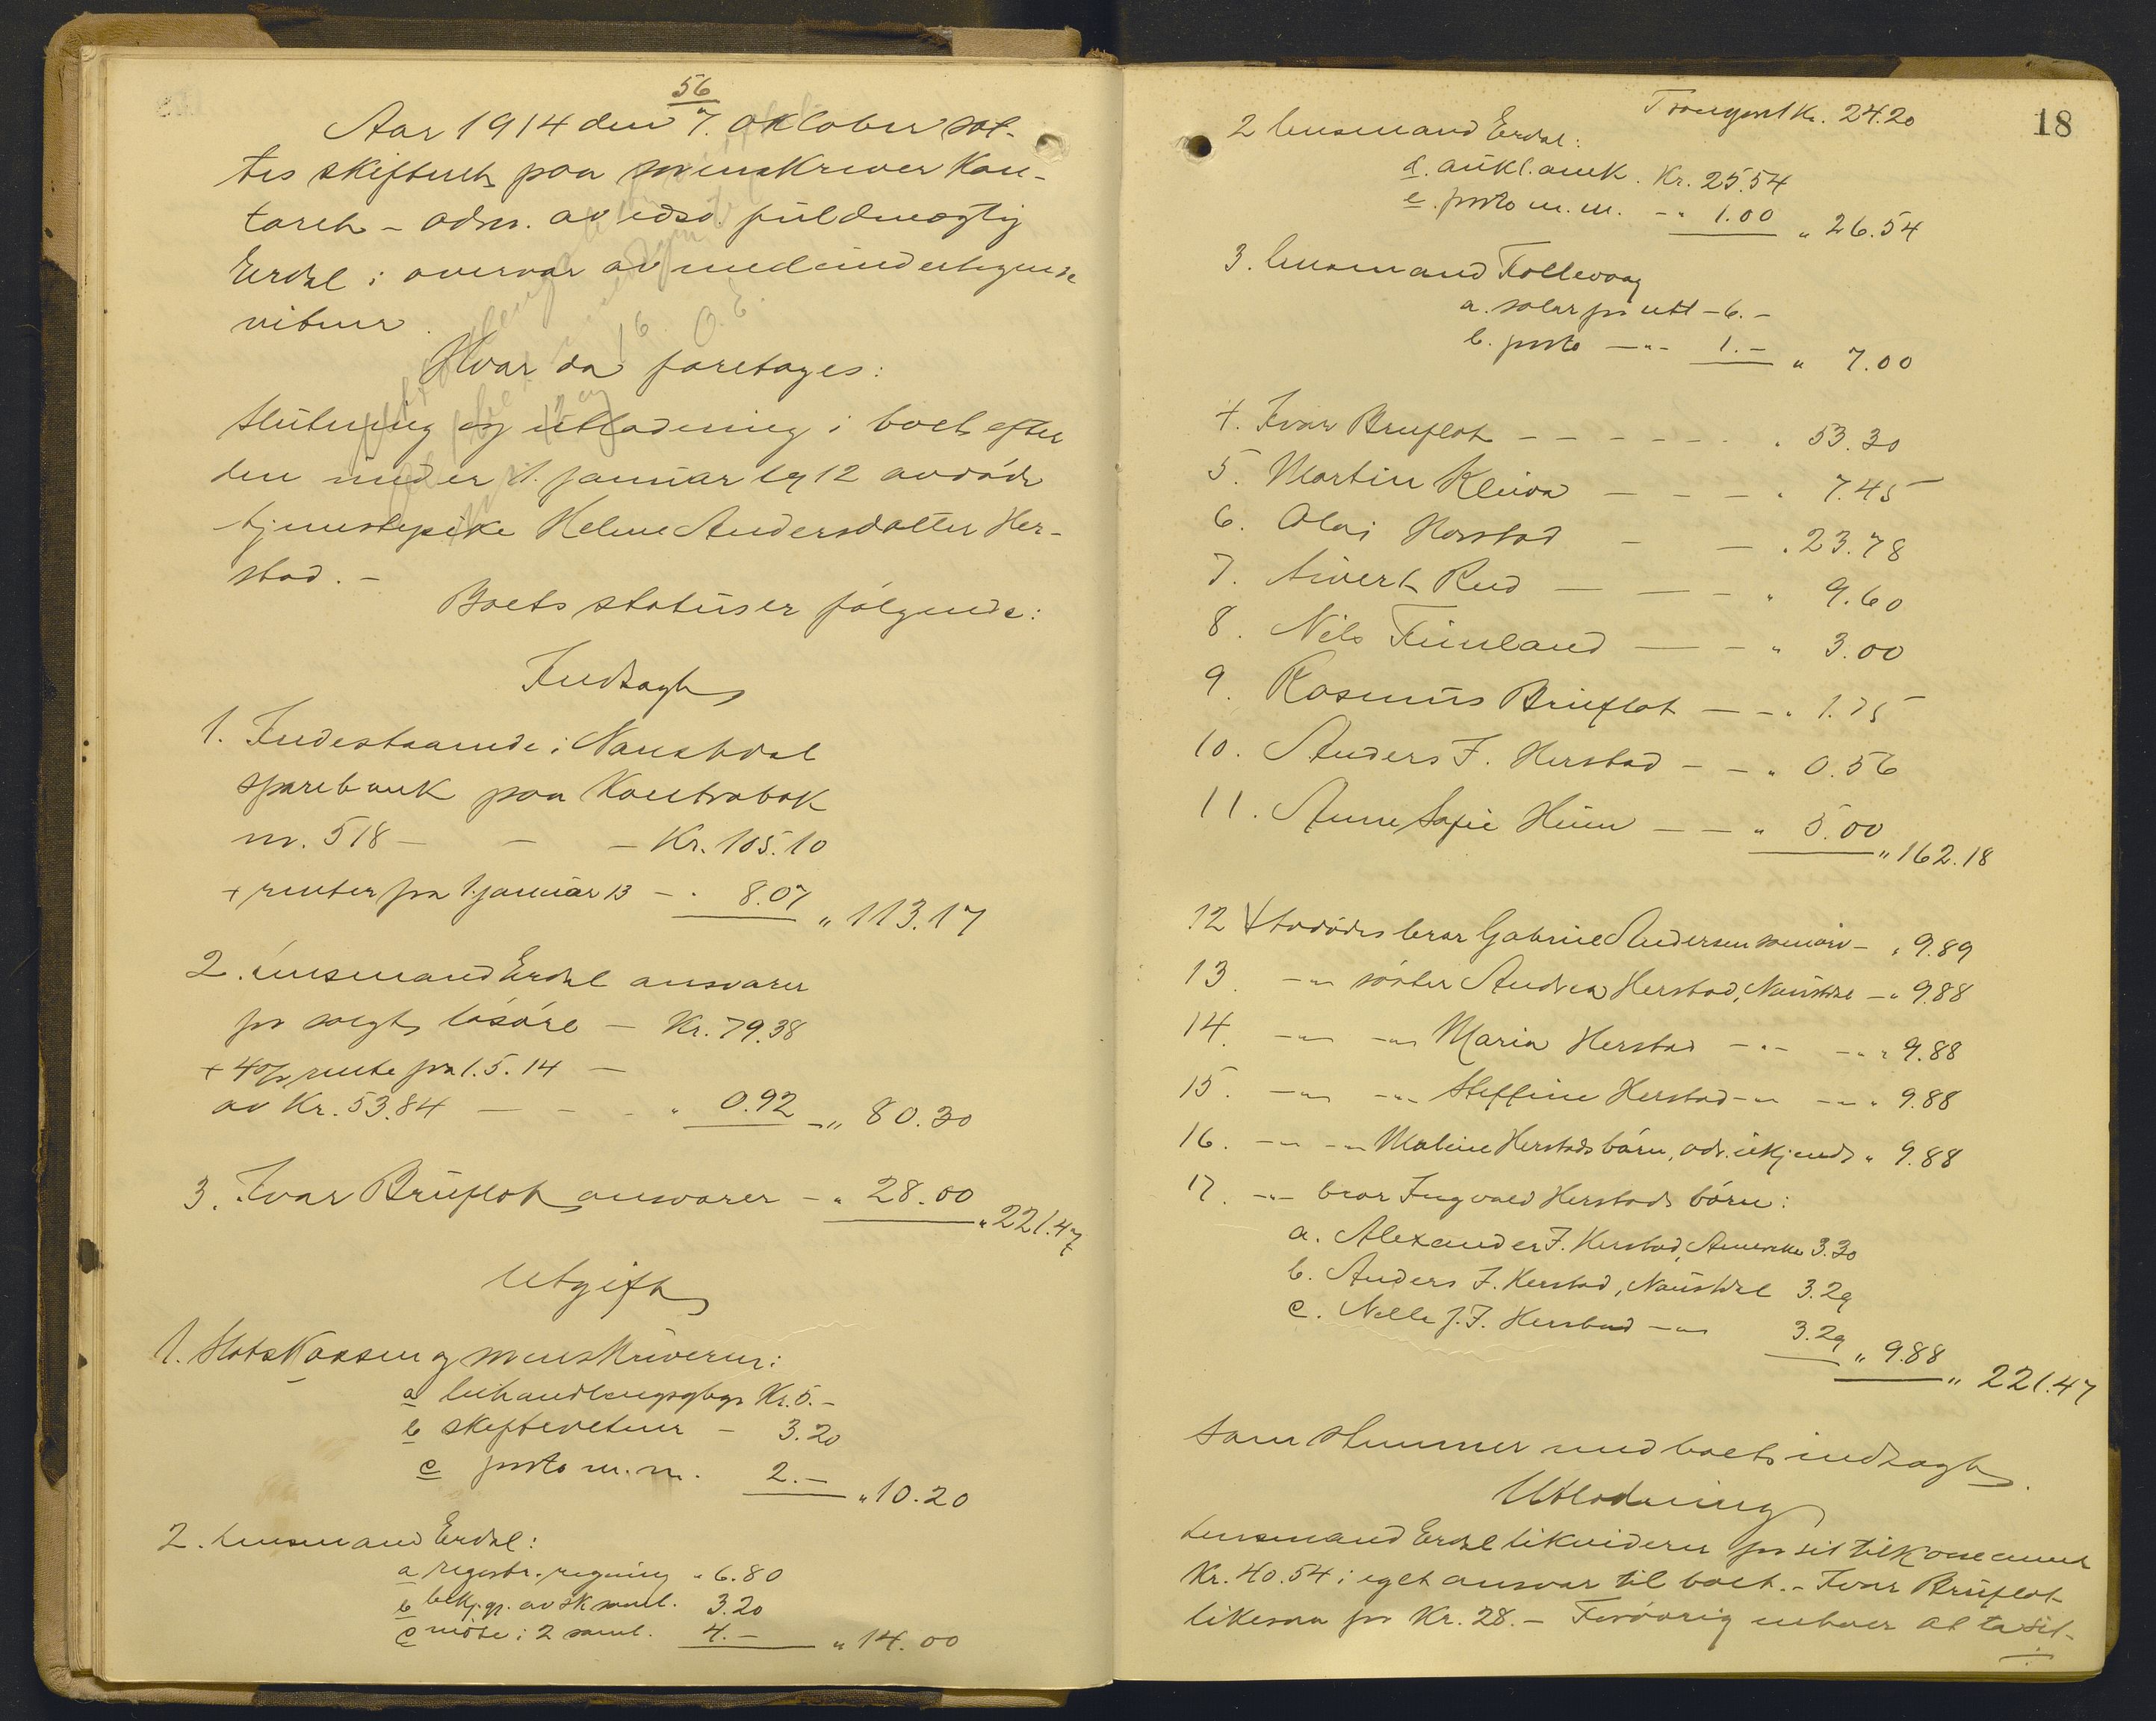 56
Aar 1914 den 7. oktober sat-
tes skifteret paa sorenskriver kon-
toret - adm. av edsv. fuldmægtig
Erdal i overvær av medundertegnede
vitner.
Hvor da foretages:
Slutning og utlodning i boet efter
den under 1. januar 1912 avdøde
tjenestepike Heline Andersdatter Her-
stad. -
Boets status er følgende:
Indtægt
1. Indestaaende i Naustdal
sparebank paa kontrabok
nr. 518 - - - Kr. 105.10
+ renter fra 1 januar 13 - " 8.07 " 113.17
2. Lensmand Erdal ansvarer
for solgt løsøre - Kr. 79.38
+ 4% rente fra 1.5.14 -
av Kr. 53.84 - - - " 0.92 - " 80.30
3. Ivar Bruflot ansvarer - " 28.00 " 221.47
Utgift
1. Statskassen og sorenskriveren:
a behandlingsgebyr Kr. 5.-
b skiftevitner - 3.20
c porto m.m. 2.- " 10.20
2. Lensmand Erdal:
a registr. regning " 6.80
b bekj.gj. av sk.saml. 3.20
c møte i 2 saml. 4.- " 14.00
18
Transport Kr. 24.20
2 lensmand Erdal:
d. aukt. omk. Kr. 25.54
e. porto m.m. - " 1.00 " 26.54
3. lensmand Tollevaag
a. salær for utl - 6.-
b. porto - " - 1.- " 7.00
4. Ivar Bruflot - - - - - - " 53.30
5. Martin Kleiva - - - " 7.45
6. Olai Horstad - - " 23.78
7. Sivert Rud - - - " 9.60
8. Nils Fimland - - " 3.00
9. Rasmus Bruflot - - " 1.75
10. Anders I. Herstad - - " 0.56
11. Anne Sofie Heim - - " 5.00 " 162.18
12 Avdødes bror Gabriel Andersen - " 9.89
13. -"- søster Andrea Herstad, Naustdal - " 9.88
14. -"- -"- Maria Herstad -"- -"- " 9.88
15. -"- -"- Steffine Herstad -"- -"- " 9.88
16. -"- -"- Maline Herstads børn, adr. ukjendt " 9.88
17. -"- bror Ingvald Herstads børn:
a. Alexander I. Herstad, Amerika 3.30
b. Anders I. Herstad, Naustdal 3.29
c. Nella J. I. Herstad -"- 3.29 " 9.88 " 221.47
som stemmer med boets indtægt.
Utlodning
Lensmand Erdal likviderer for sit tilkommende
Kr. 40.54 i eget ansvar til boet. - Ivar Bruflot
likesaa for Kr. 28. - Forøvrig enhver at ta sit